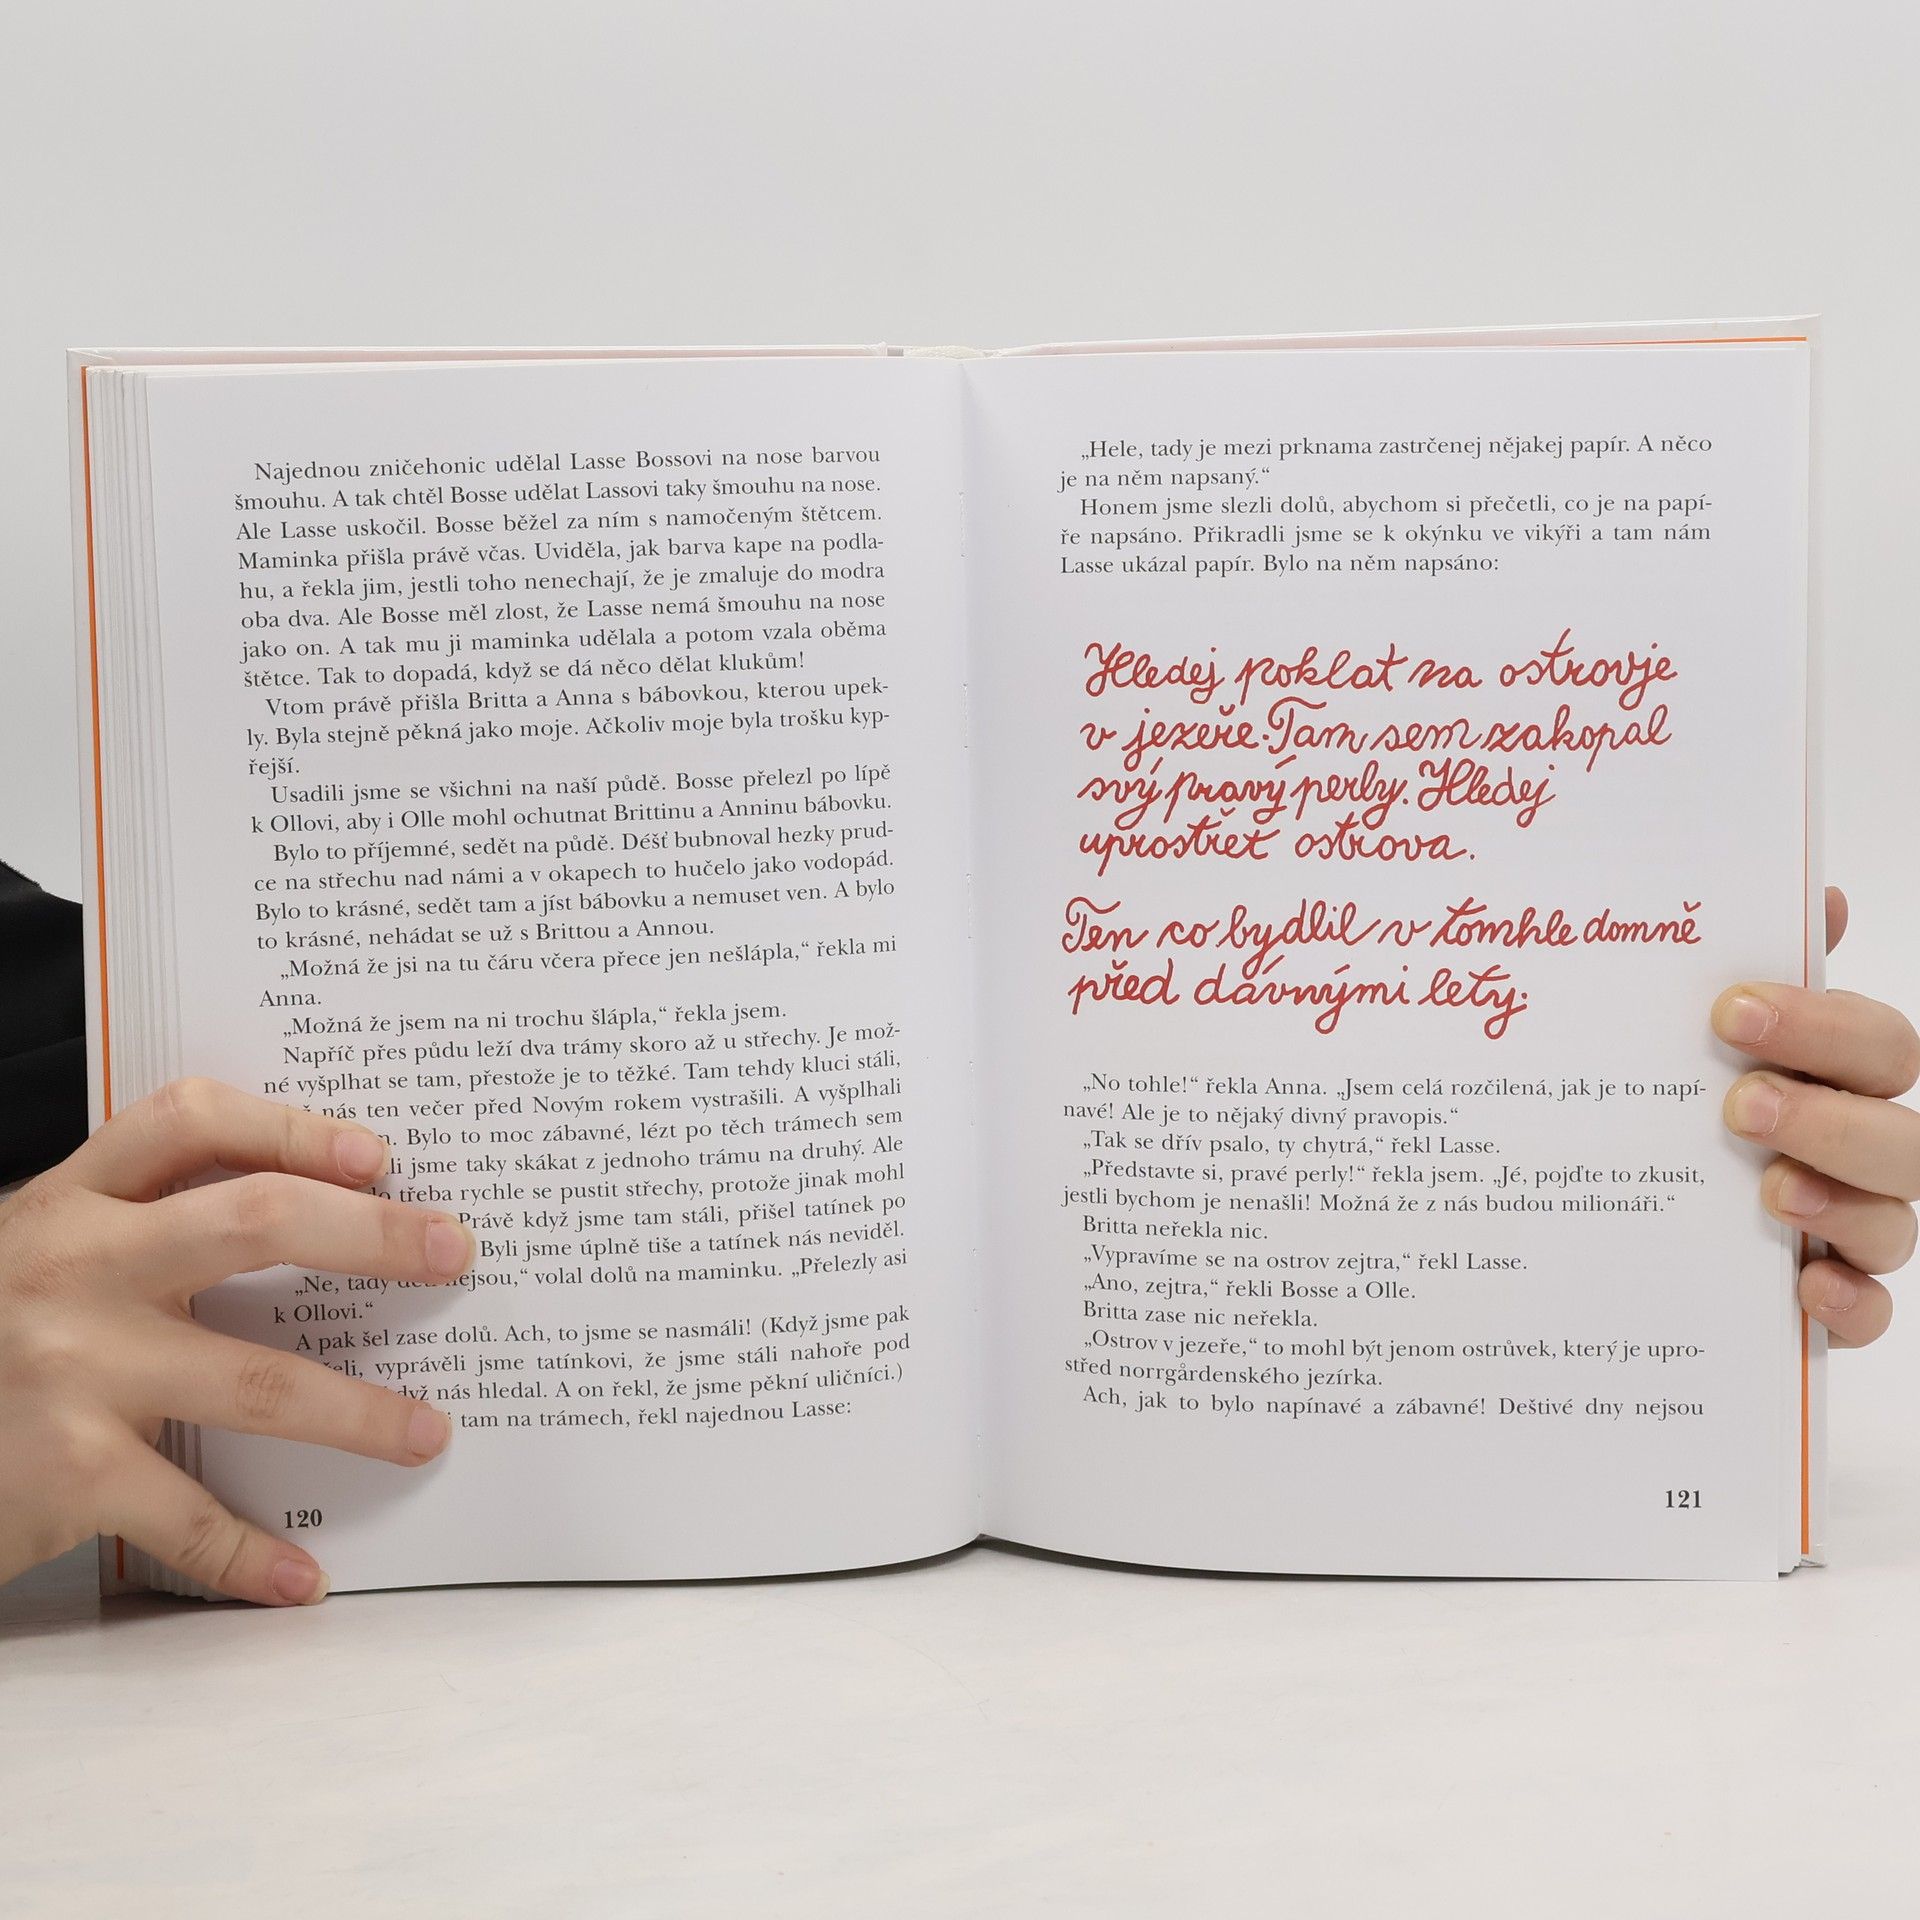 Najednou zničehonic udělal Lasse Bossovi na nose barvou
šmouhu. A tak chtěl Bosse udělat Lassovi taky šmouhu na nose.
Ale Lasse uskočil. Bosse běžel za ním s namočeným štětcem.
Maminka přišla právě včas. Uviděla, jak barva kape na podla-
hu, a řekla jim, jestli toho nenechají, že je zmaluje do modra
oba dva. Ale Bosse měl zlost, že Lasse nemá šmouhu na nose
jako on. A tak mu ji maminka udělala a potom vzala oběma
štětce. Tak to dopadá, když se dá něco dělat klukům!
Vtom právě přišla Britta a Anna s bábovkou, kterou upek-
ly. Byla stejně pěkná jako moje. Ačkoliv moje byla trošku kyp-
řejší.
Usadili jsme se všichni na naší půdě. Bosse přelezl po lípě
k Ollovi, aby i Olle mohl ochutnat Brittinu a Anninu bábovku.
Bylo to příjemné, sedět na půdě. Déšť bubnoval hezky prud-
ce na střechu nad námi a v okapech to hučelo jako vodopád.
Bylo to krásné, sedět tam a jíst bábovku a nemuset ven. A bylo
to krásné, nehádat se už s Brittou a Annou.
„Možná že jsi na tu čáru včera přece jen nešlápla,“ řekla mi
Anna.
„Možná že jsem na ni trochu šlápla,“ řekla jsem.
Napříč přes půdu leží dva trámy skoro až u střechy. Je mož-
né vyšplhat se tam, přestože je to těžké. Tam tehdy kluci stáli,
nás ten večer před Novým rokem vystrašili. A vyšplhali
Bylo to moc zábavné, lézt po těch trámech sem
jsme taky skákat z jednoho trámu na druhý. Ale
třeba rychle se pustit střechy, protože jinak mohl
Právě když jsme tam stáli, přišel tatínek po
Byli jsme úplně tiše a tatínek nás neviděl.
„Ne, tady děti nejsou,“ volal dolů na maminku. „Přelezly asi
k Ollovi.“
A pak šel zase dolů. Ach, to jsme se nasmáli! (Když jsme pak
vyprávěli jsme tatínkovi, že jsme stáli nahoře pod
když nás hledal. A on řekl, že jsme pěkní uličníci.)
tam na trámech, řekl najednou Lasse:
120
„Hele, tady je mezi prknama zastrčenej nějakej papír. A něco
je na něm napsaný.“
Honem jsme slezli dolů, abychom si přečetli, co je na papí-
ře napsáno. Přikradli jsme se k okýnku ve vikýři a tam nám
Lasse ukázal papír. Bylo na něm napsáno:
Hledej poklat na ostrovje
v jezeře. Tam sem zakopal
svý pravý perly. Hledej
uprostřet ostrova.
Ten co bydlil v tomhle domně
před dávnými lety.
„No tohle!“ řekla Anna. „Jsem celá rozčilená, jak je to napí-
navé! Ale je to nějaký divný pravopis.“
„Tak se dřív psalo, ty chytrá,“ řekl Lasse.
„Představte si, pravé perly!“ řekla jsem. „Jé, pojďte to zkusit,
jestli bychom je nenašli! Možná že z nás budou milionáři.“
Britta neřekla nic.
„Vypravíme se na ostrov zejtra,“ řekl Lasse.
„Ano, zejtra,“ řekli Bosse a Olle.
Britta zase nic neřekla.
„Ostrov v jezeře,“ to mohl být jenom ostrůvek, který je upro-
střed norrgårdenského jezírka.
Ach, jak to bylo napínavé a zábavné! Deštivé dny nejsou
121